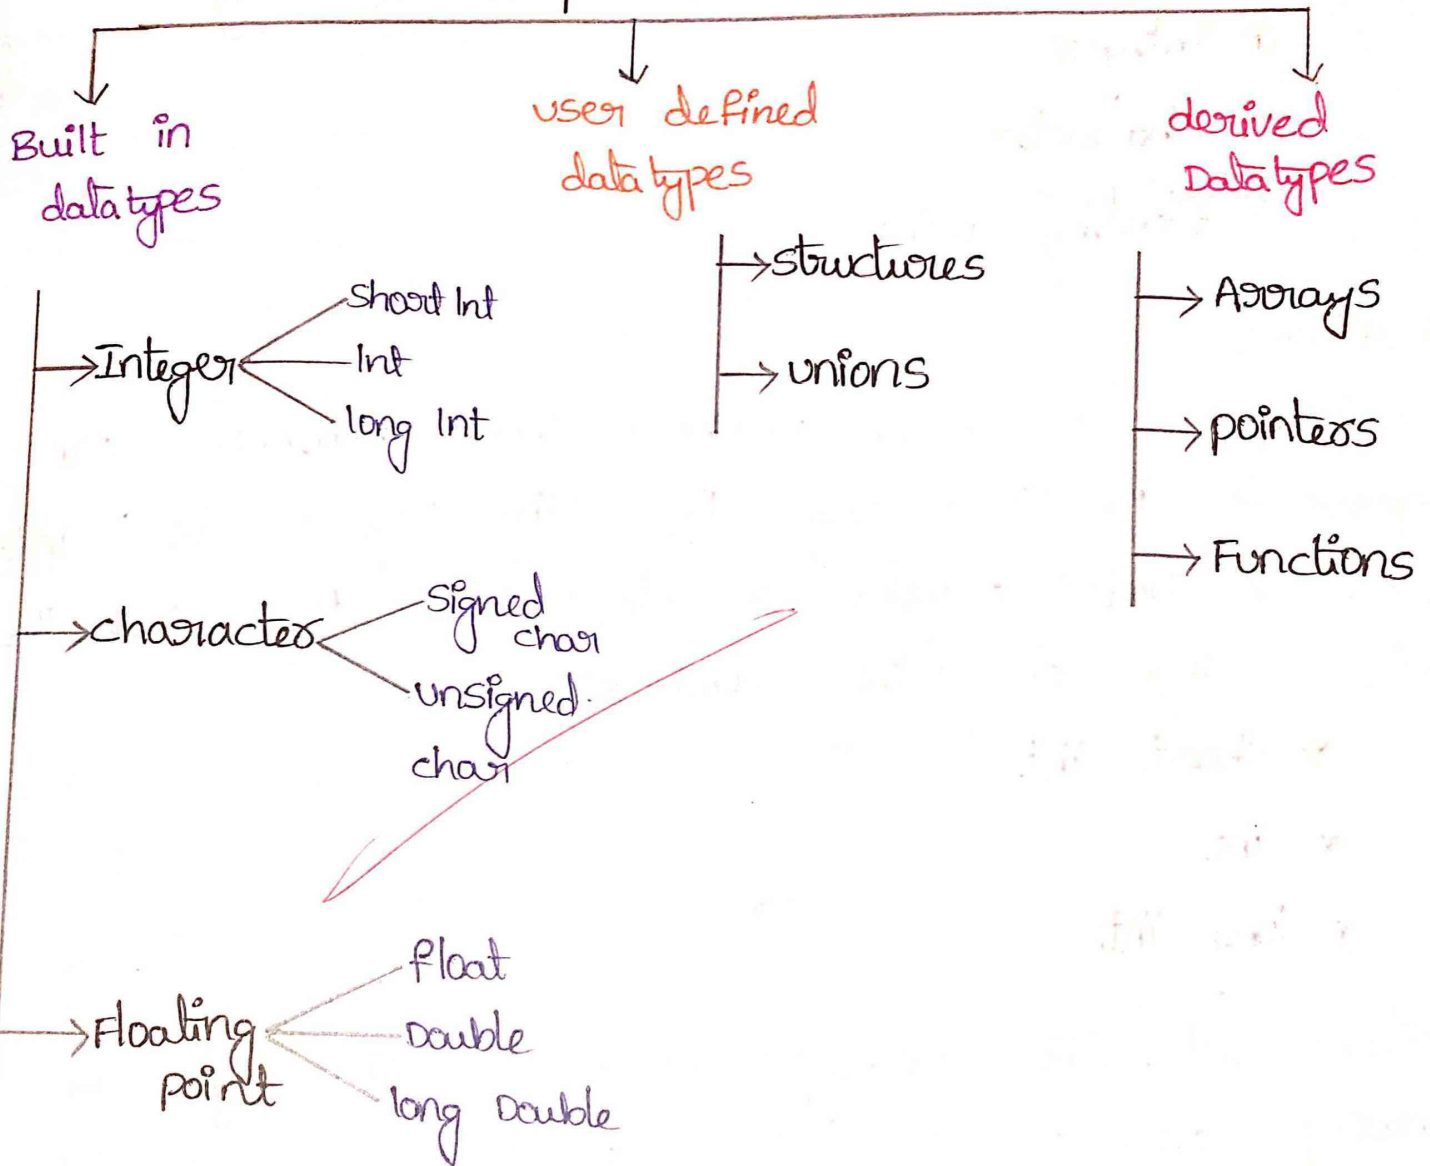 Built in
datatypes
Integer
Short Int
Int
long Int
character
Signed
char
unsigned
char
Floating
point
float
Double
long Double
user defined
datatypes
structures
unions
derived
Datatypes
Arrays
pointers
Functions